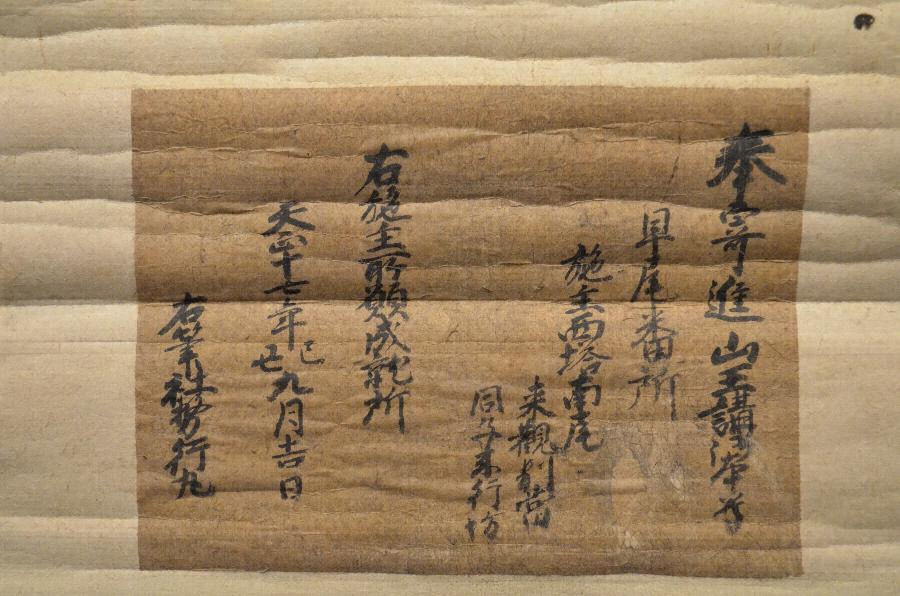 奉寄進山王講演本尊
早尾番所
施主西塔南尾
来観別当
同
来行坊
右施主所願成就所
天正十七年己丑九月吉日
右筆社務行丸